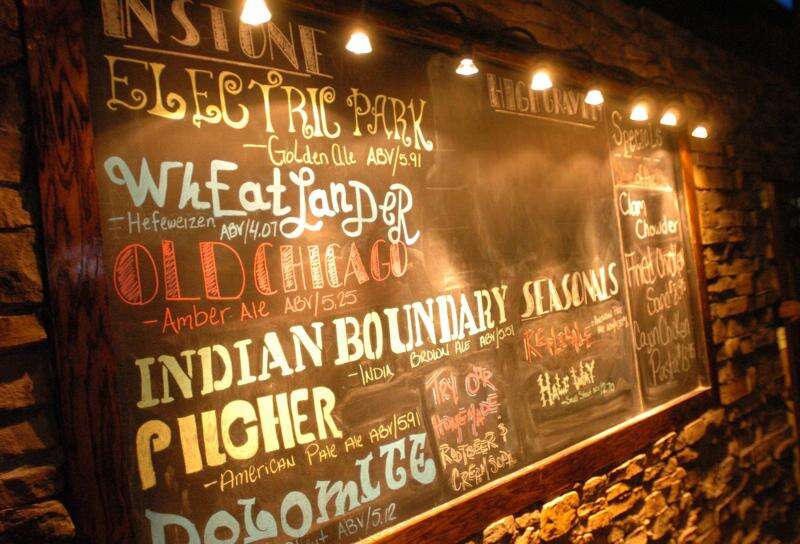 IN STONE
ELECTRIC PARK
-Golden Ale ABV/5.91
WhEatLanDeR
=Hefeweizen ABV/4.07
OLD CHICAGO
-Amber Ale ABV/5.25
INDIAN BOUNDARY
-INDIA BROWN ALE ABV/5.51
PILCHER
-AMERICAN PALE ALE ABV/5.91
DOLOMITE
ABV/5.12
TRY OUR
HOMEMADE
ROOTBEER &
CREAM SODA
HIGH GRAVITY
SEASONALS
HALF DAY
Specials
Clam
Chowder